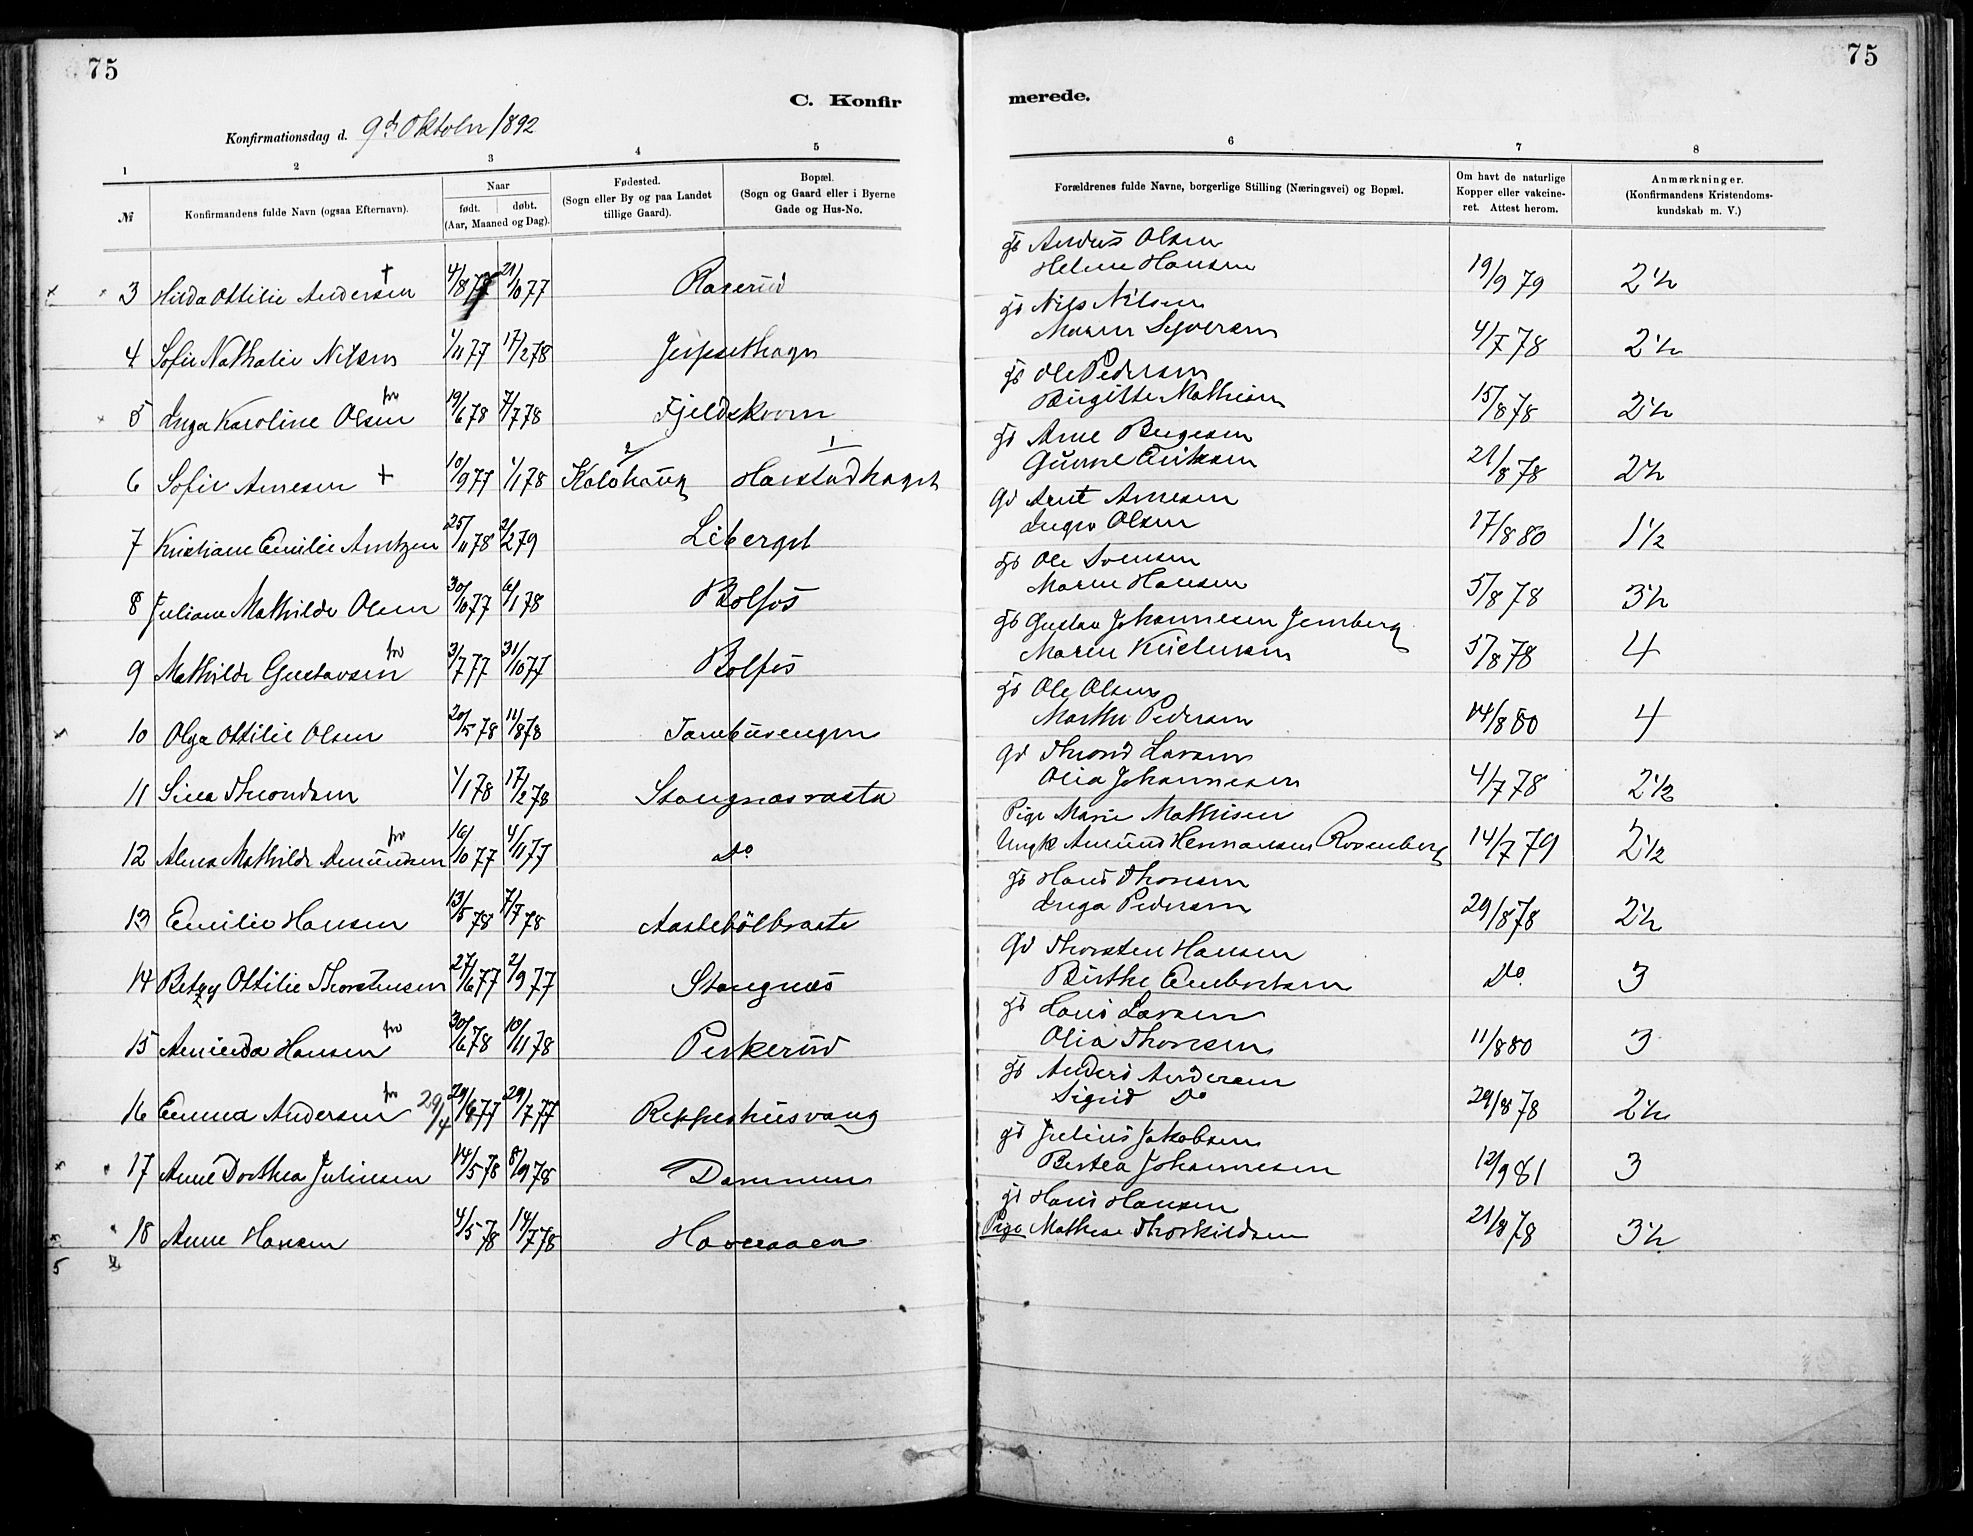 75
75
C. Konfir
merede.
Konfirmationsdag d. 9de Oktober 1892
1 2 3 4 5 6 7 8
№
Konfirmandens fulde Navn (ogsaa Efternavn).
Naar
født. døbt.
(Aar, Maaned og Dag).
Fødested.
(Sogn eller By og paa Landet
tillige Gaard).
Bopæl.
(Sogn og Gaard eller i Byerne
Gade og Hus-No.
Forældrenes fulde Navne, borgerlige Stilling (Næringsvei) og Bopæl.
Om havt de naturlige
Kopper eller vakcine-
ret. Attest herom.
Anmærkninger.
(Konfirmandens Kristendoms-
kundskab m. V.)
3 Hilda Ottilie Andersen + 4/8 77 21/10 77
Anders Olsen
Helene Hansen 19/9 79 2½
4 Sofie Nathalie Nilsen 1/11 77 17/2 78
Nils Nilsen
Maren Syversen 4/7 78 2½
5 Inga Karoline Olsen 19/6 78 7/7 78 Fjeldskvern
Ole Pedersen
Birgitte Mathisen 15/8 78 2½
6 Sofie Arnesen + 10/9 77 1/1 78 Kolohaug Harstadhaget
Arne Bergesen
Gunne Eriksen 21/8 78 2½
7 Kristiane Emilie Arntzen 25/11 78 2/2 79 Liberget
Arnt Arnesen
Inger Olsen 17/8 80 1½
8 Juliane Mathilde Olsen 30/10 77 6/1 78 Bolfos
Ole Svensen
Maren Hansen 5/8 78 3½
9 Mathilde Gustavsen 3/7 77 31/10 77 Bolfos
Gustav Johannesen Jernberg
Maren Kristensen 5/8 78 4
10 Olga Ottilie Olsen 20/5 78 11/8 78
Ole Olsen
Marthe Pedersen 14/8 80 4
11 Sina Throndsen 1/1 78 17/2 78 Stangnæsraste
Thrond Larsen
Olia Johannesen 4/7 78 2½
12 Alma Mathilde Amundsen 16/10 77 4/11 77 Do
Pige Marie Mathisen
Ungk Amund Hermansen Rosenberg 14/7 79 2½
13 Emilie Hansen 13/5 78 7/7 78 Aastebölbraate
Hans Thoresen
Inga Pedersen 29/8 78 2½
14 Betzy Ottilie Thorstensen 27/6 77 2/9 77 Stangnæs
Thorsten Hansen
Birthe Embretsen Do 3
15 Aminda Hansen 30/6 78 10/11 78 Perkerud
Hans Larsen
Olia Thoresen 11/8 80 3
16 Emma Andersen 29/4 29/6 77 29/7 77 Reppeshusvang
Anders Andersen
Sigrid Do 29/8 78 2½
17 Anne Dorthea Juliusen 14/5 78 8/9 78 Dammen
Julius Jakobsen
Bertea Johannesen 12/9 81 3
18 Anne Hansen 4/5 78 14/7 78
Hans Hansen
Pige Mathea Thorkildsen 21/8 78 3½